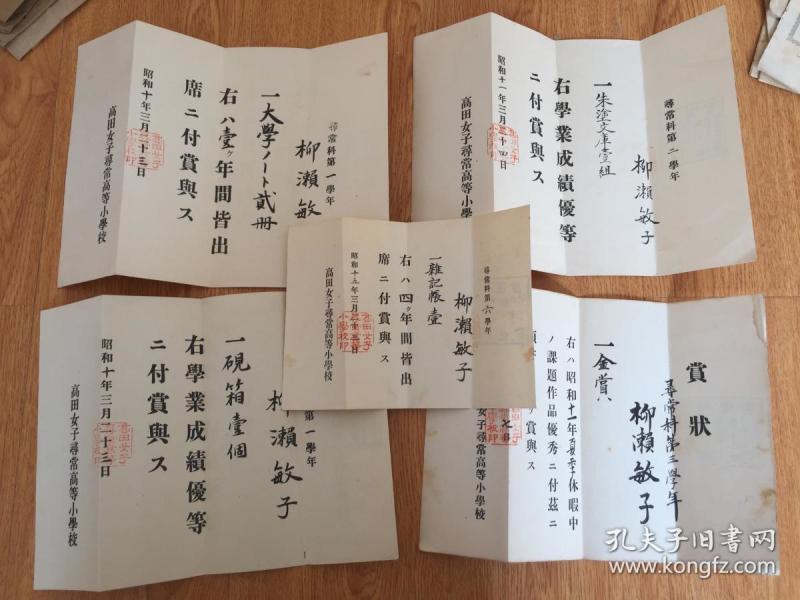 尋常科第一學年
柳瀨敏
一大學ノート貳冊
右ハ壹ヶ年間皆出
席ニ付賞與ス
昭和十年三月二十三日
高田女子尋常高等小學校
尋常科第二學年
柳瀨敏子
一朱塗文庫壹組
右學業成績優等
ニ付賞與ス
昭和十一年三月二十四日
高田女子尋常高等小學
尋常科第六學年
柳瀨敏子
一雜記帳壹
右ハ四ヶ年間皆出
席ニ付賞與ス
昭和十五年三月二十三日
高田女子尋常高等小學校
第一學年
柳瀨敏子
一硯箱壹個
右學業成績優等
ニ付賞與ス
昭和十年三月二十三日
高田女子尋常高等小學校
賞狀
尋常科第三學年
柳瀨敏子
一金賞
右ハ昭和十一年夏季休暇中
ノ課題作品優秀ニ付茲ニ
賞與ス
高等小學校
孔夫子旧书网
www.kongfz.com